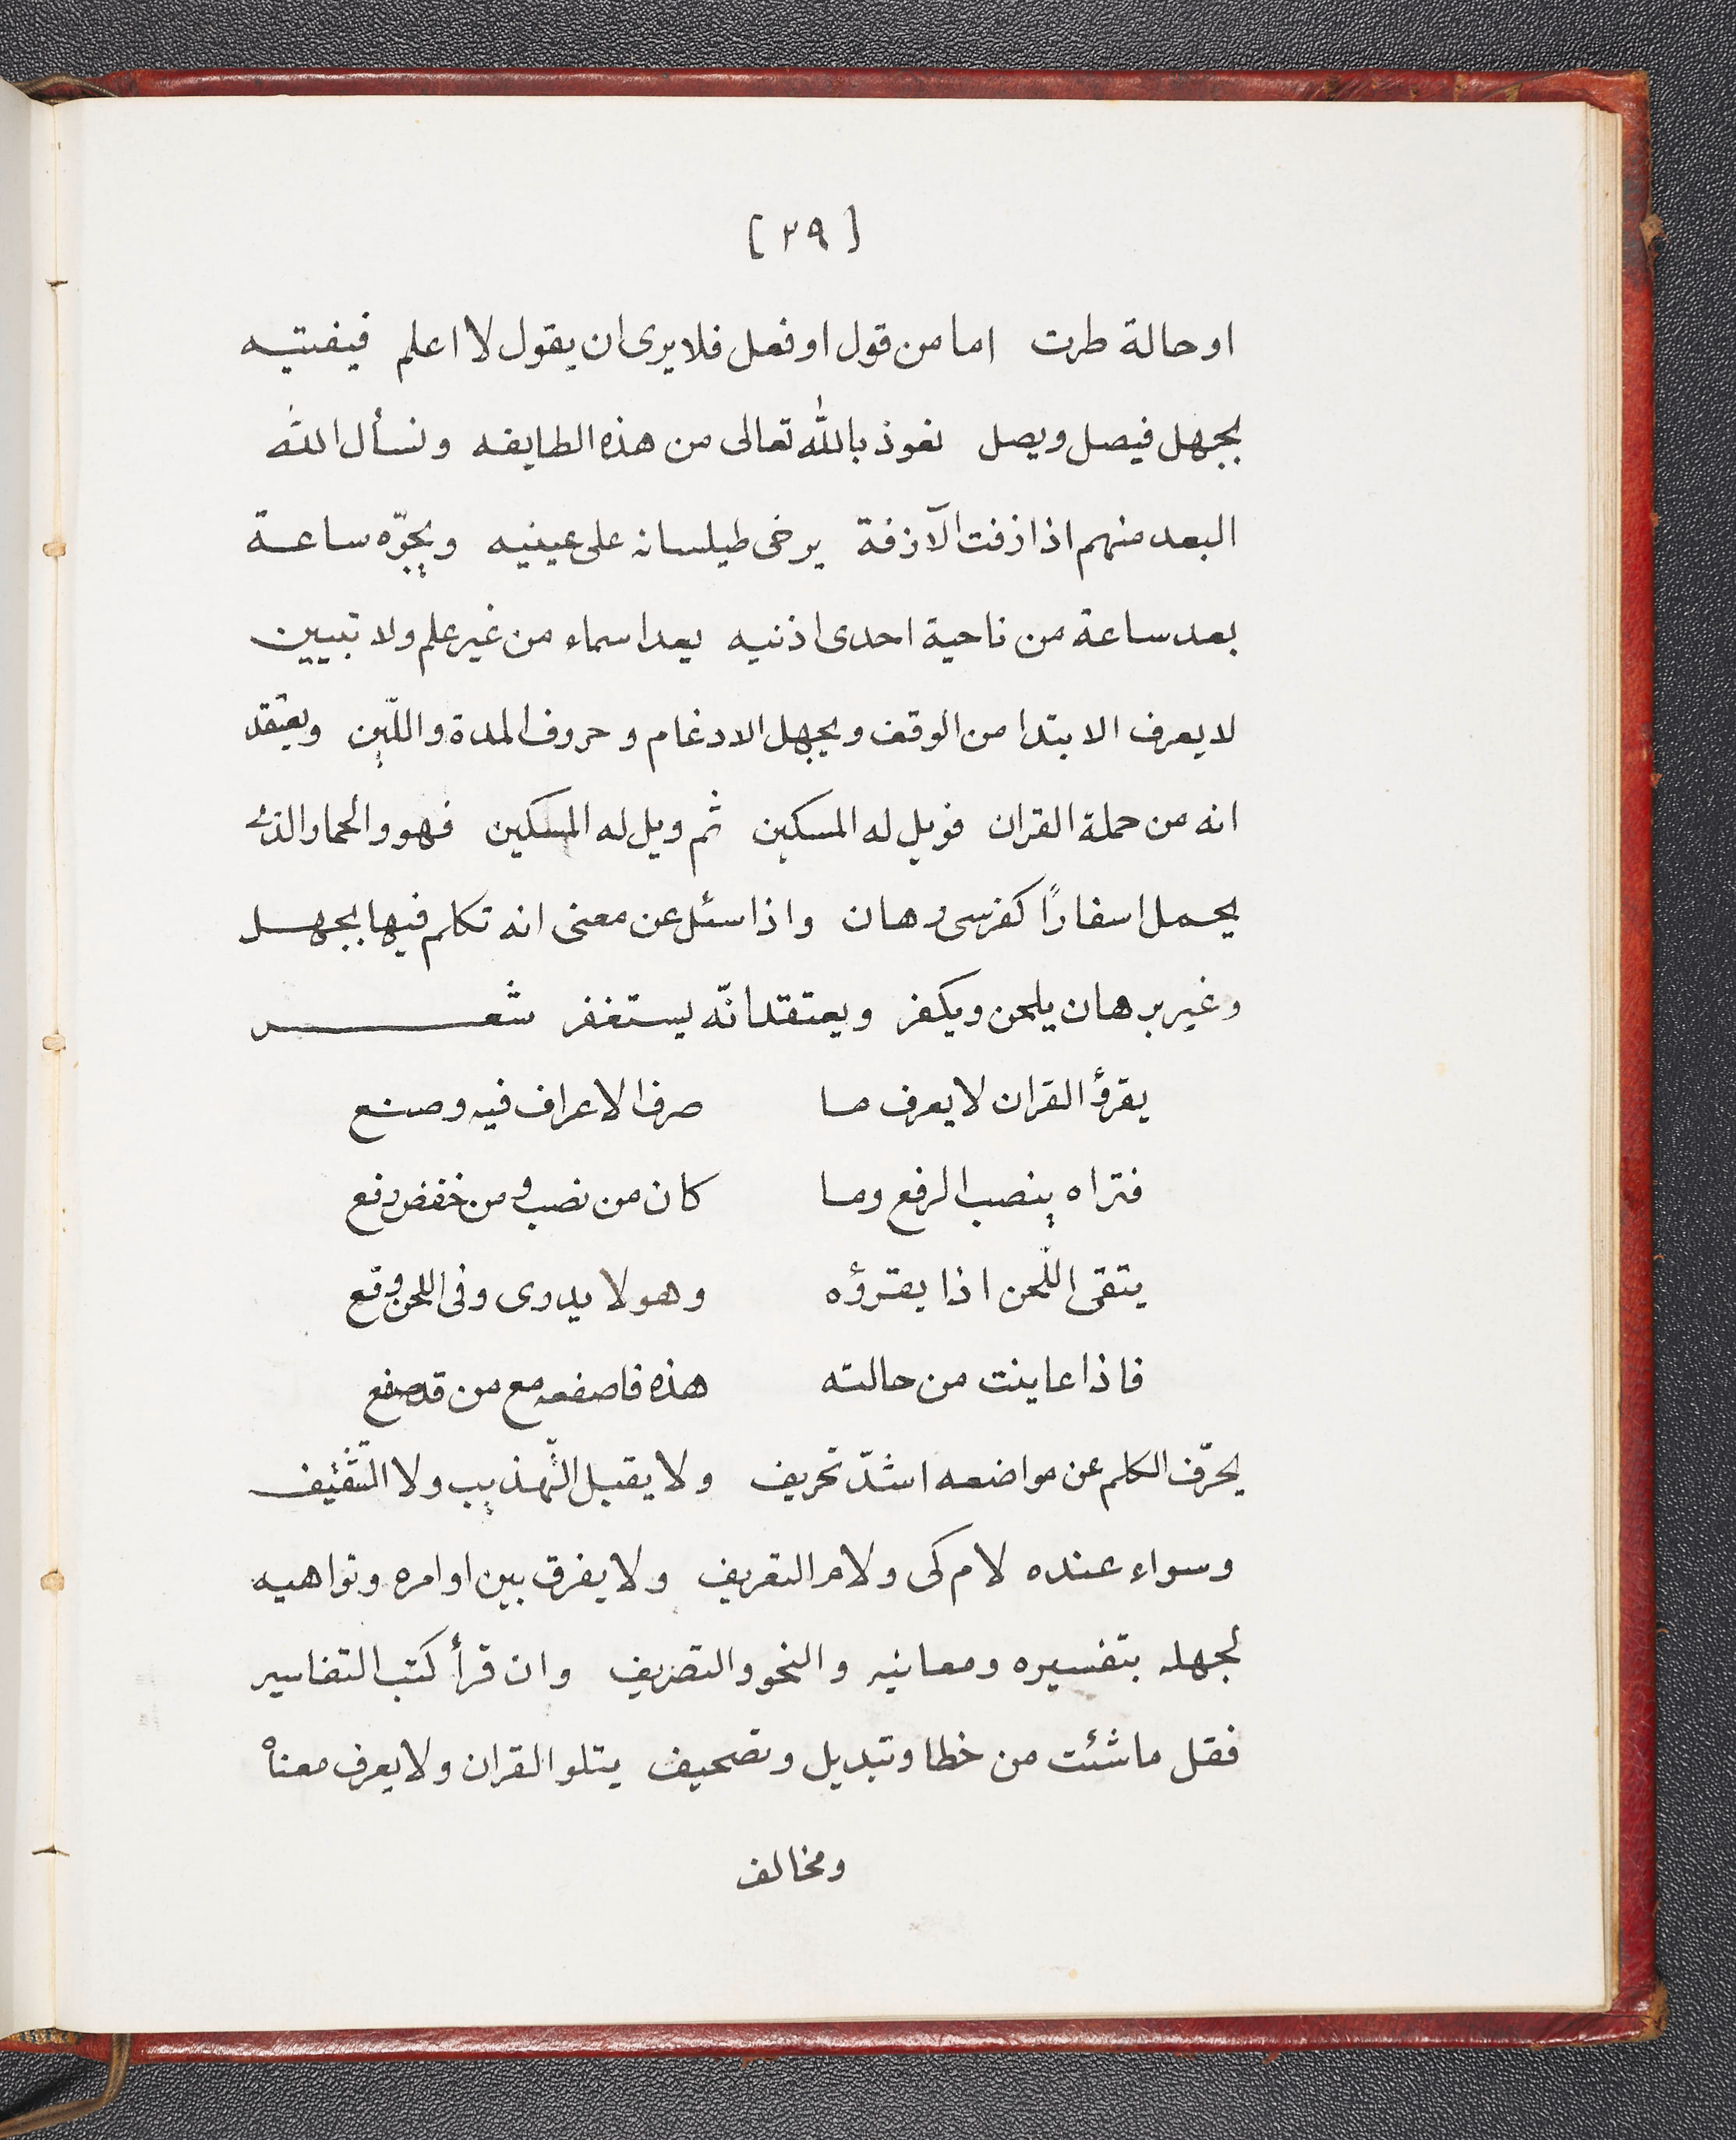 [ ٢٩ ]
او حالة طرت اما من قول او فعل فلا يرى ان يقول لا اعلم فيفتيه
بجهل فيصل ويصل نعوذ بالله تعالى من هذه الطايفه ونسأل الله
البعد منهم اذا ازفت الآزفة يرخى طيلسانه على عينيه ويجرّه ساعة
بعد ساعة من ناحية احدى اذنيه يعد اسماء من غير علم ولا تبيين
لا يعرف الابتدا من الوقف ويجهل الادغام وحروف المدة واللّين ويعتقد
انه من حملة القران فويل له المسكين ثم ويل له المسكين فهو والحمار الذى
يحمل اسفارًا كفرسى رهان واذا سئل عن معنى انه تكلم فيها بجهل
وغير برهان يلحن ويكفر ويعتقد انّه يستغفر شعر
يقرؤ القران لا يعرف ما صرف الاعراف فيه وصنع
فتراه ينصب الرفع وما كان من نصب و من خفض رفع
يتقى اللّحن اذا يقرؤه وهو لا يدرى وفى اللحن وقع
فاذا عاينت من حالته هذه فاصفعه مع من قد صفع
يحرّف الكلم عن مواضعه اشدّ تحريف ولا يقبل التّهذيب ولا التّثقيف
وسواء عنده لام كى ولام التعريف ولا يفرق بين اوامره ونواهيه
لجهله بتفسيره ومعانيه والنحو والتصريف وان قرأ كتب التفاسير
فقل ما شئت من خطا وتبديل وتصحيف يتلو القران ولا يعرف معناه
ومخالف